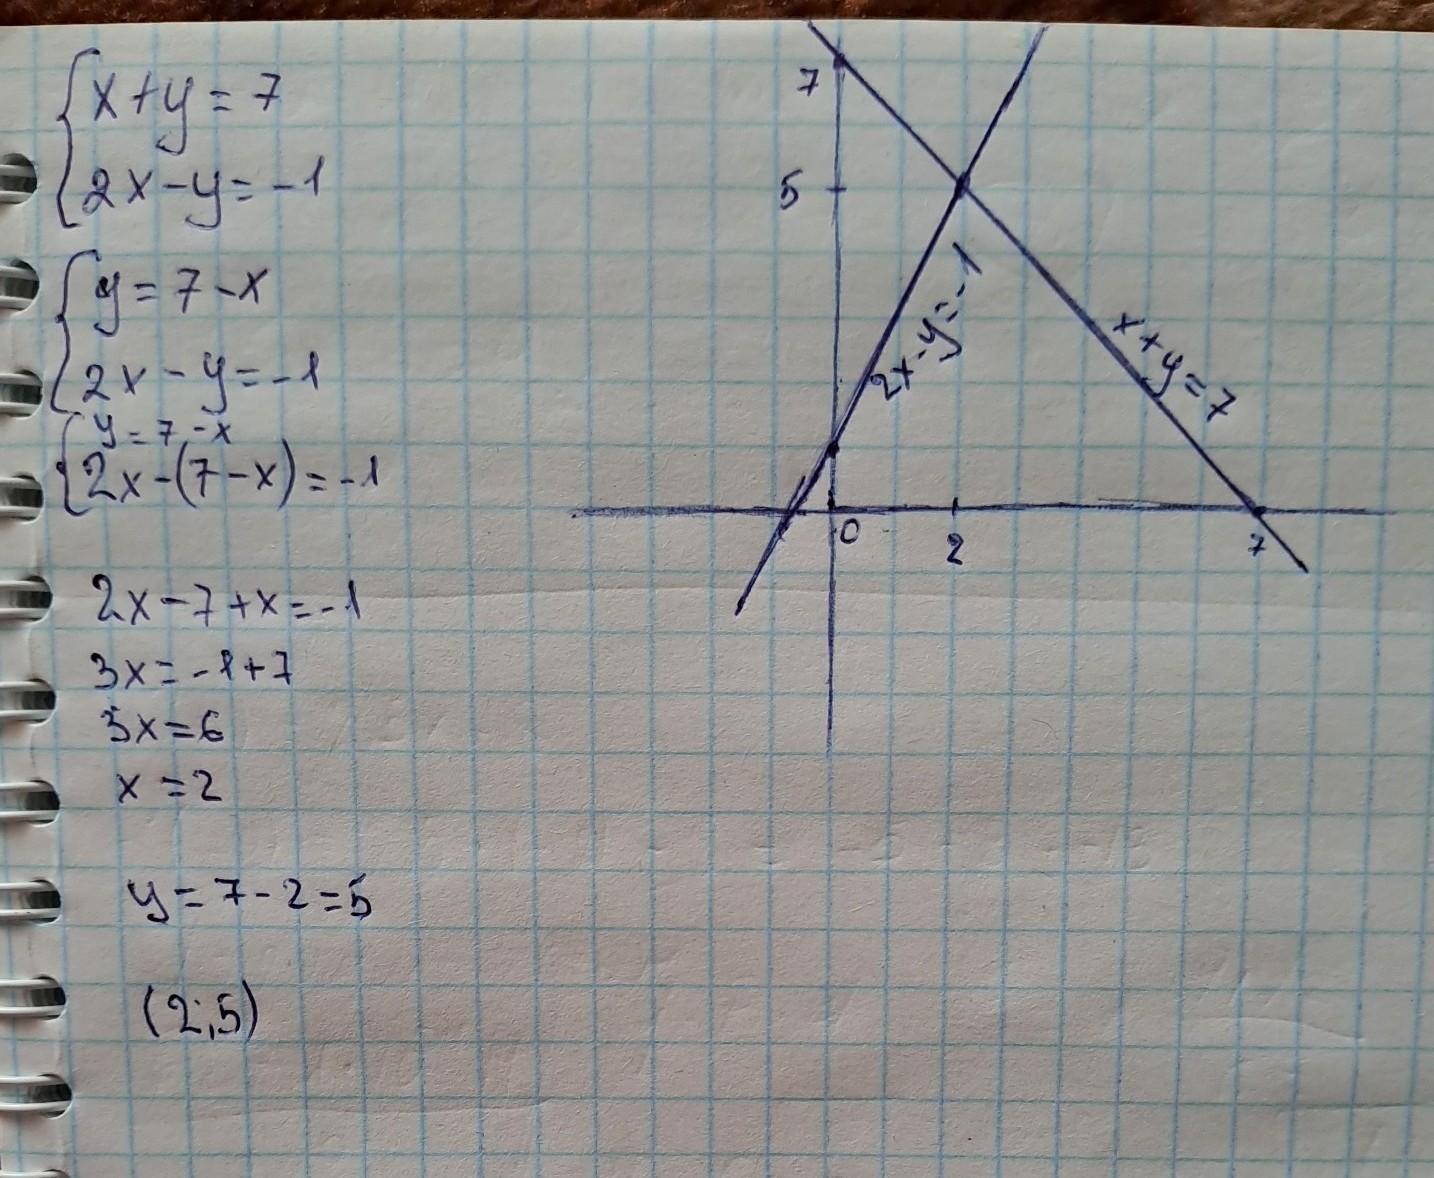 x+y=7
2x-y=-1
y=7-x
2x-y=-1
y=7-x
2x-(7-x)=-1
2x-7+x=-1
3x=-1+7
3x=6
x=2
y=7-2=5
(2;5)
7
5
2x-y=-1
x+y=7
0 2 7